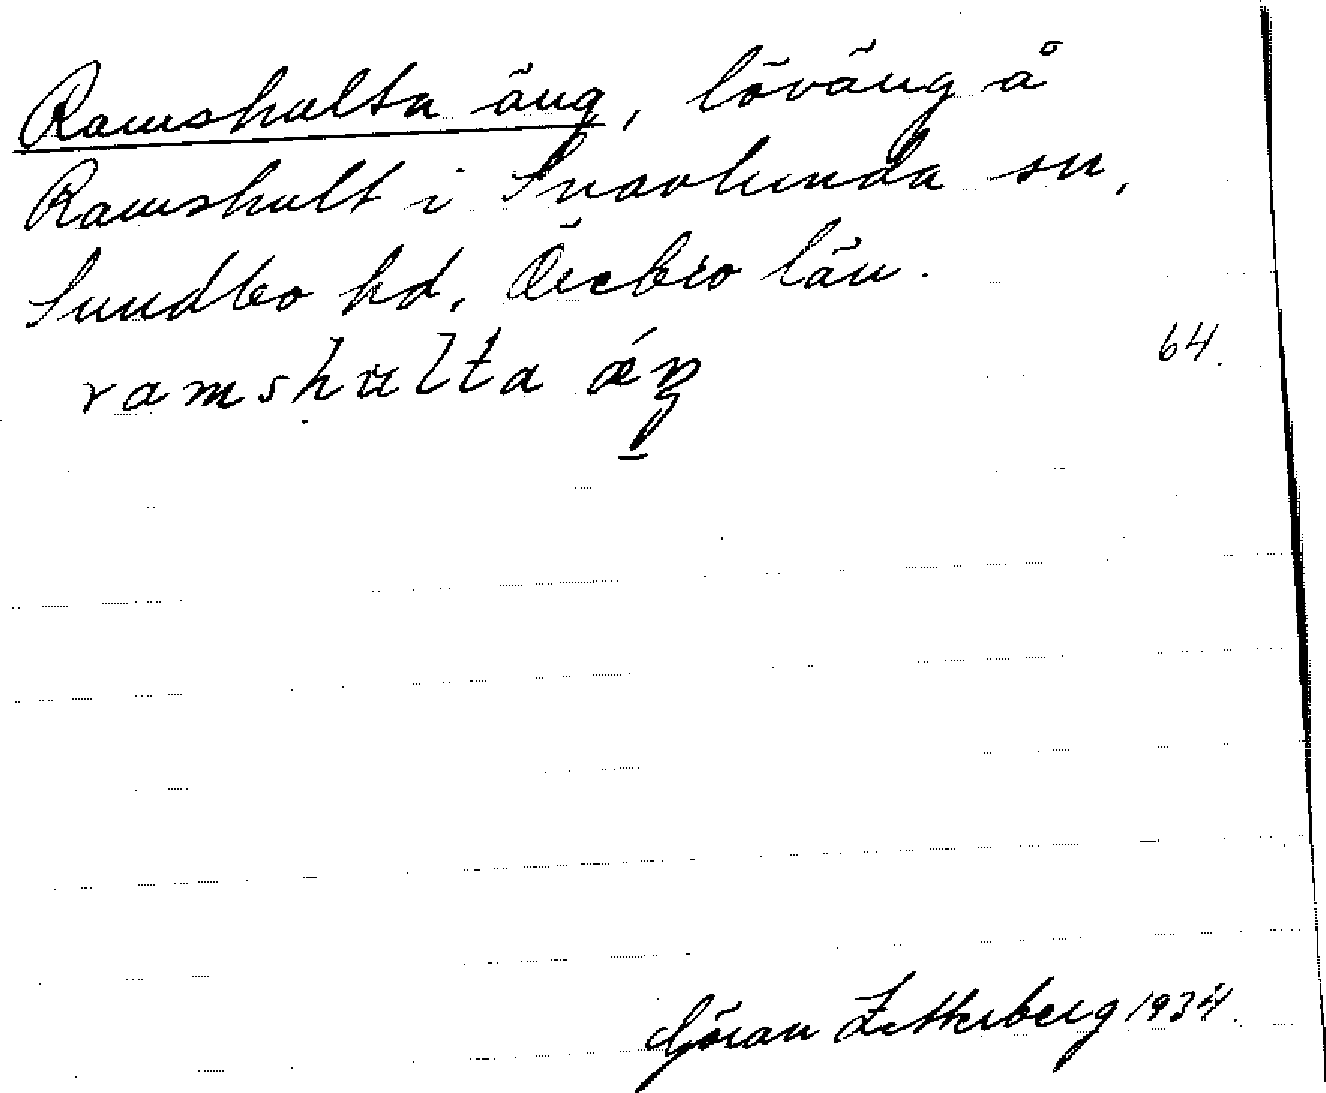 Ramshulta äng, löväng å
Ramshult i Snavlunda sn,
Sundbo hd, Örebro län.
64.
ramshulta
Göran Zetterberg 1934.